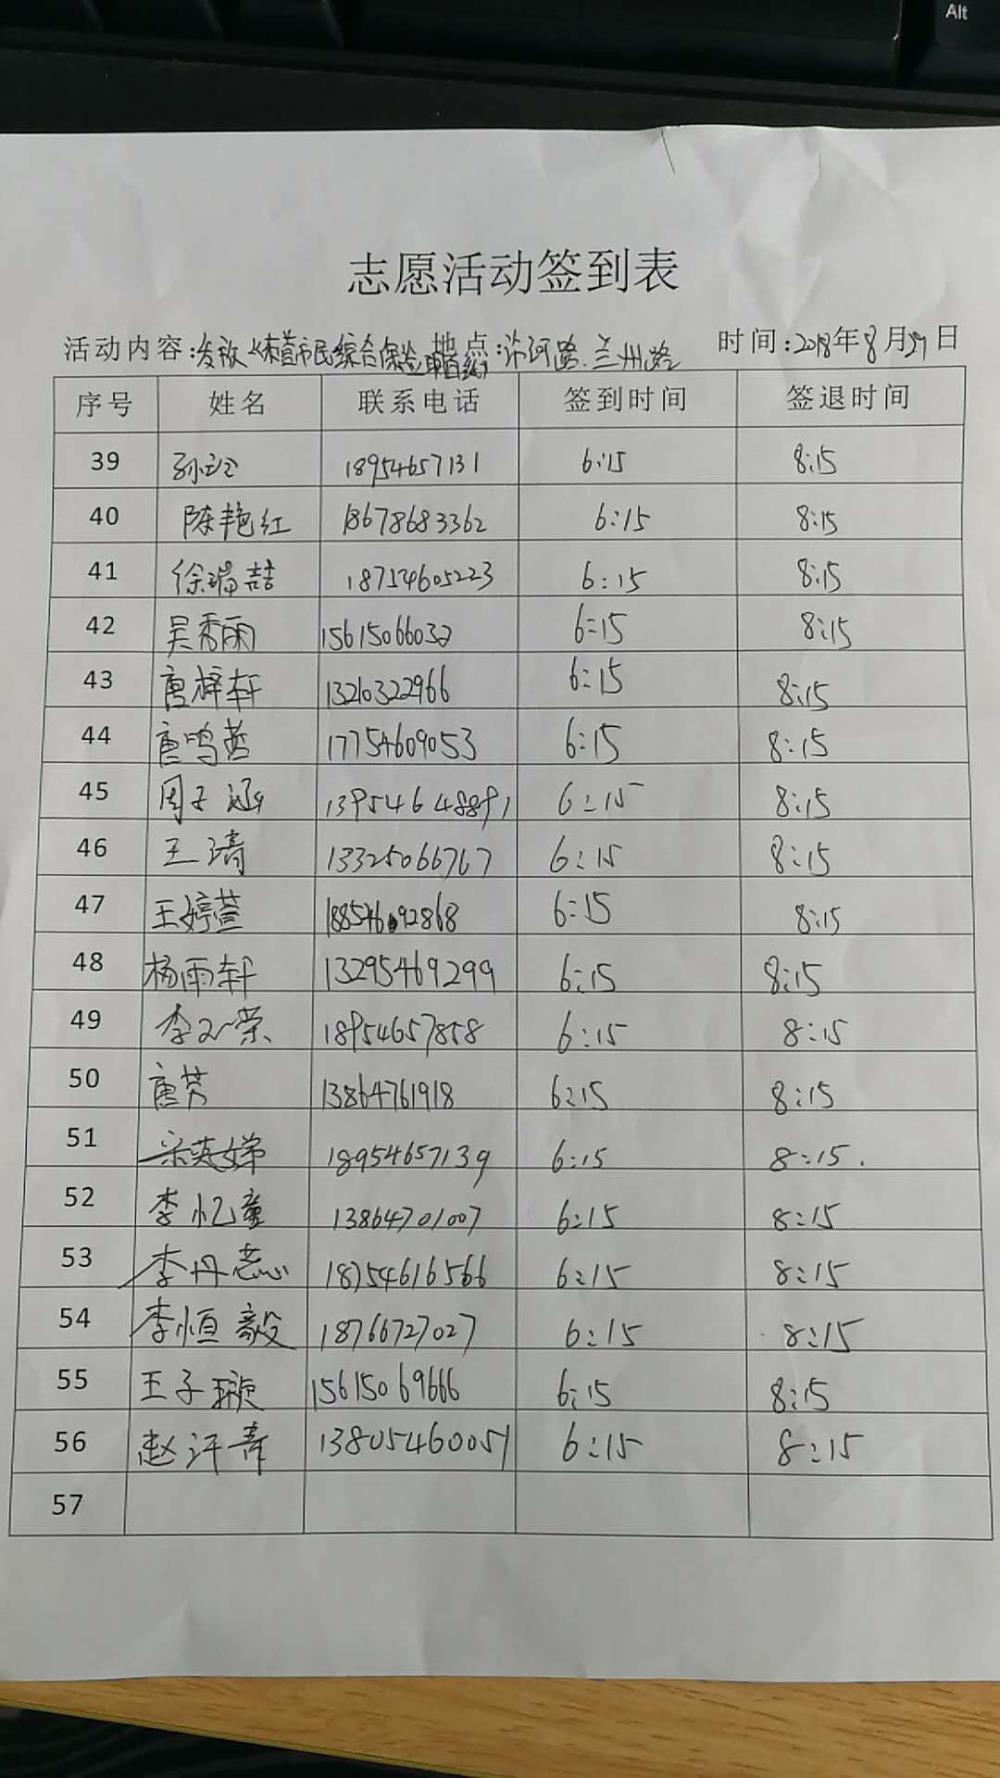 Alt
志愿活动签到表
活动内容:发放《东营市民综合保险 地点:沂河路.兰州路 时间:2018年8月29日
序号 姓名 联系电话 签到时间 签退时间
39 18954657131 6:15 8:15
40 陈艳红 18678683362 6:15 8:15
41 徐瑞喆 18754605223 6:15 8:15
42 吴秀雨 15615066032 6:15 8:15
43 唐梓轩 13210322966 6:15 8:15
44 唐鸣蔚 17754609053 6:15 8:15
45 周子涵 13954648891 6:15 8:15
46 王清 13325066767 6:15 8:15
47 王婷萱 6:15 8:15
48 杨雨轩 13295469299 6:15 8:15
49 18954657858 6:15 8:15
50 唐芳 13864761918 6:15 8:15
51 宋英娣 18954657139 6:15 8:15.
52 李忆童 13864701007 6:15 8:15
53 李丹蕊 18754616566 6:15 8:15
54 李恒毅 18766727027 6:15 8:15
55 王子璇 15615069666 6:15 8:15
56 赵汗青 13805460051 6:15 8:15
57